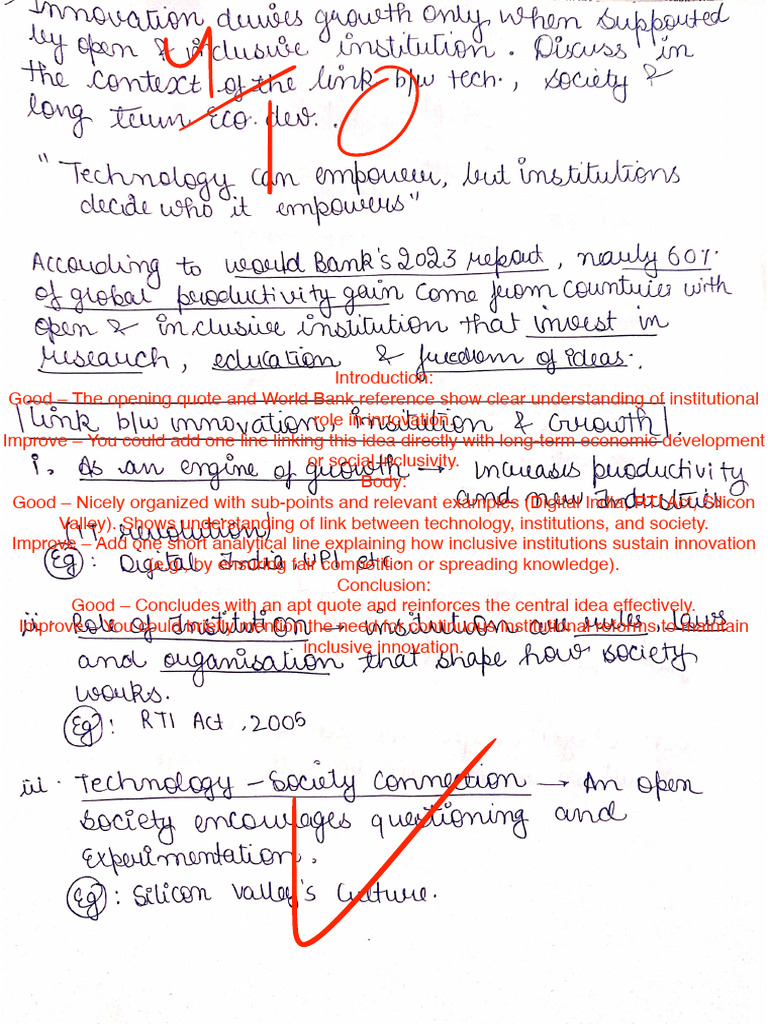 Innovation drives growth only when supported
by open & inclusive institution. Discuss in
the context of the link b/w tech., society &
long term eco. dev. .
4
10
"Technology can empower, but institutions
decide who it empowers"
According to world Bank's 2023 report, nearly 60%
of global productivity gain come from countries with
open & inclusive institution that invest in
research, education & freedom of ideas.
Introduction:
Good – The opening quote and World Bank reference show clear understanding of institutional
role in innovation.
Link b/w innovation, institution & Growth
Improve – You could add one line linking this idea directly with long-term economic development
or social inclusivity.
i. As an engine of growth → increases productivity
and new Industries
Body:
Good – Nicely organized with sub-points and relevant examples (Digital India, RTI Act, Silicon
Valley). Shows understanding of link between technology, institutions, and society.
(IT revolution)
Improve – Add one short analytical line explaining how inclusive institutions sustain innovation
(e.g., by ensuring fair competition or spreading knowledge).
Eg: Digital India, UPI etc.
Conclusion:
Good – Concludes with an apt quote and reinforces the central idea effectively.
Improve – You could briefly mention the need for continuous institutional reforms to maintain
inclusive innovation.
ii Role of Institution → institution are rules, laws
and organisation that shape how society
works.
Eg: RTI Act, 2005
iii. Technology – Society Connection → An open
society encourages questioning and
experimentation.
Eg: Silicon Valley's Culture.